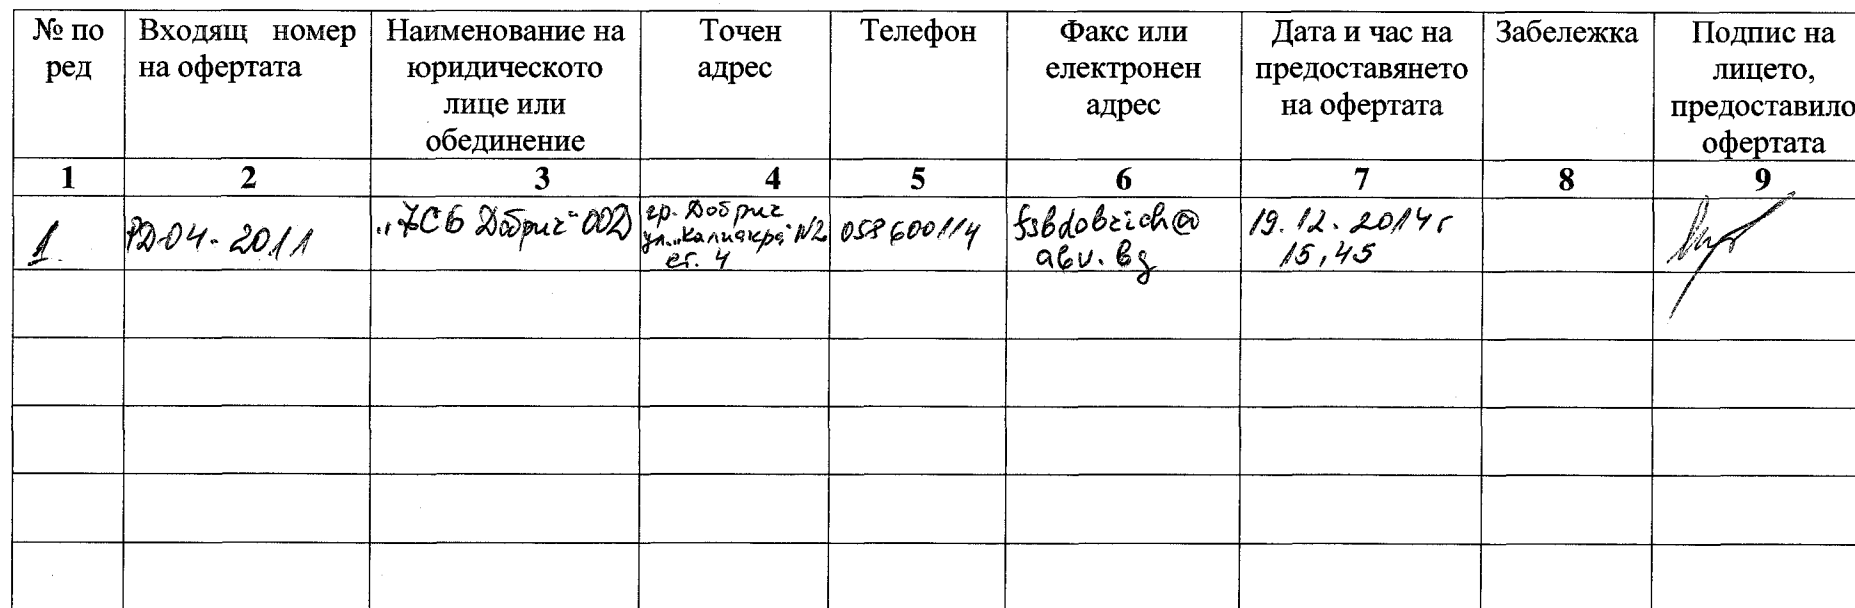 № по ред
Входящ номер на офертата
Наименование на юридическото лице или обединение
Точен адрес
Телефон
Факс или електронен адрес
Дата и час на предоставянето на офертата
Забележка
Подпис на лицето, предоставило офертата
1 2 3 4 5 6 7 8 9
1.
РД-04-2011
Добрич" ООД
гр. Добрич
ул. "Калиакра" №2
ет. 4
058 600114
fsbdobrich@
abv.bg
19.12.2014г
15,45